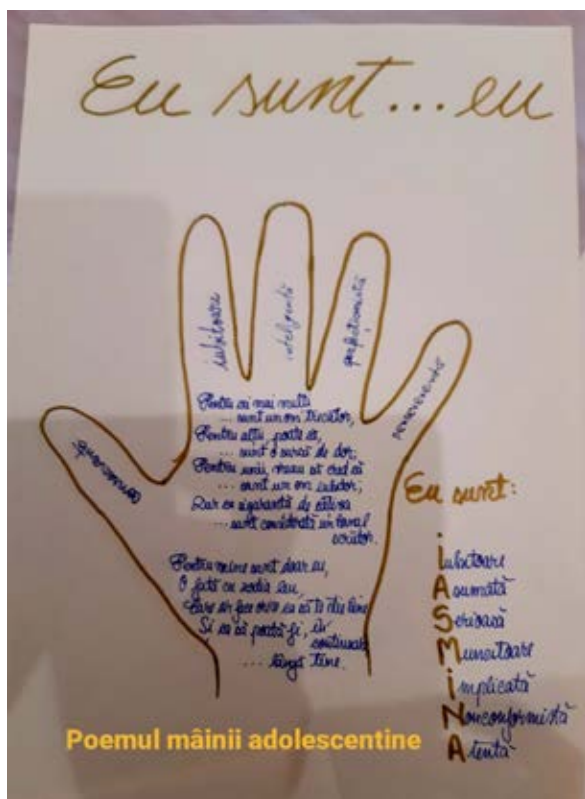 Eu sunt...eu
iubitoare
inteligentă
perfecționistă
perseverentă
Pentru cei mai mulți
... sunt un om trecător,
Pentru alții poate că,
... sunt o sursă de dor,
Pentru unii, vreau să cred că
... sunt un om iubitor,
Dar cu siguranță de câțiva
... sunt considerată un banal
scriitor.
Pentru mine sunt doar eu,
O fată cu zodia leu,
Care ar face orice ca să te bine
Și ca să poată fi, în
continuare,
... lângă tine.
Eu sunt:
iubitoare
Asumată
Serioasă
Muncitoare
implicată
Nonconformistă
Atentă
Poemul mâinii adolescentine